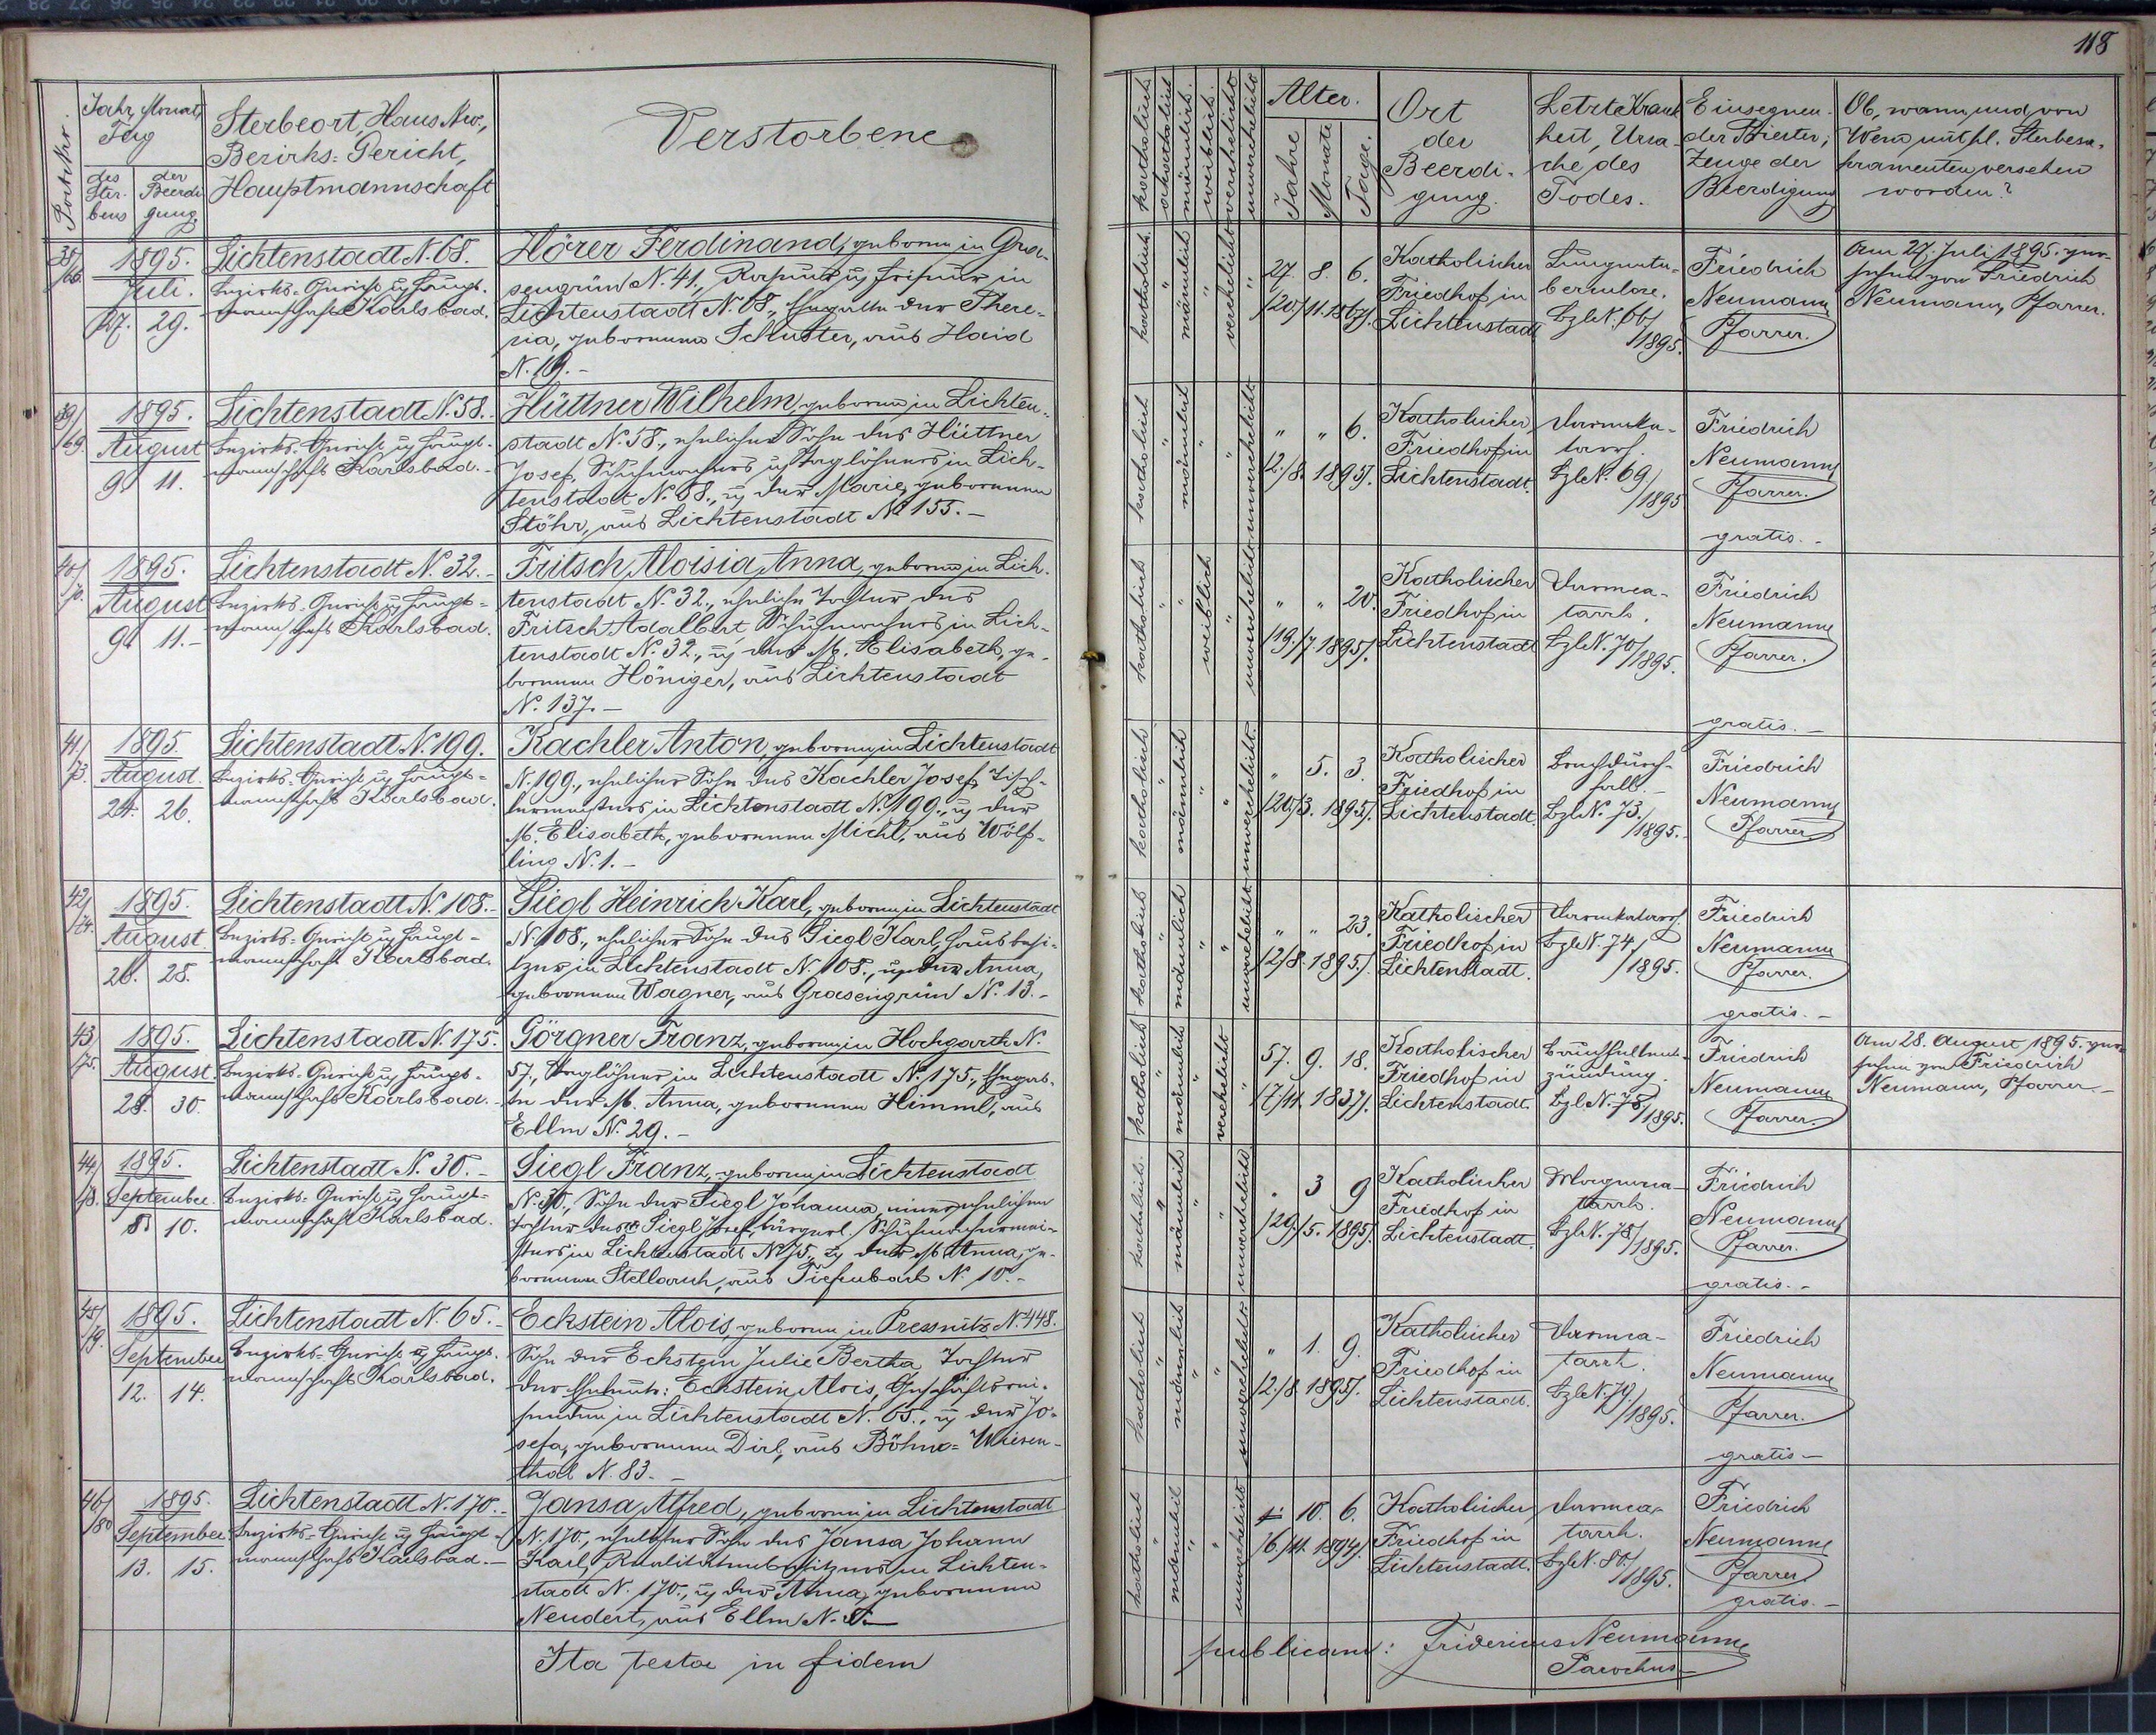 118
Post Nr.
Jahr, Monat, Tag
des Sterbens
der Beerdigung
Sterbeort, Haus Nro.,
Bezirks-Gericht,
Hauptmannschaft
Verstorbene
katholisch
akatholisch
männlich
weiblich
verehelicht
unverehelicht
Alter.
Jahre
Monate
Tage.
Ort
der
Beerdi-
gung.
Letzte Krank
heit, Ursa-
che des
Todes.
Einsegnen-
der Priester,
Zeuge der
Beerdigung
Ob, wann, und von
Wem mit hl. Sterbesa-
kramenten versehen
worden?
1895.
Juli.
27. 29.
Lichtenstadt N. 68.
Bezirks-Gericht u. Haupt-
mannschaft Karlsbad.
Hörer Ferdinand, geboren in Gra-
sengrün N. 41., Raseur u. Friseur in
Lichtenstadt N. 68., Ehegatte der There-
sia, geborenen Schuster, aus Haid
N. 19.-
katholisch " männlich " verehelicht "
27. 8. 6.
/20./11. 1867/.
Katholischer
Friedhof in
Lichtenstadt
Lungentu-
berculose.
BzlN. 66/
/1895.
Friedrich
Neumann
Pfarrer.
Am 27. Juli 1895. ver-
sehen von Friedrich
Neumann, Pfarrer.
39/
/69.
1895.
August
9. 11.
Lichtenstadt N. 58.
Bezirks-Gericht u. Haupt-
mannschaft Karlsbad.-
Hüttner Wilhelm, geboren in Lichten-
stadt N. 58., ehelicher Sohn des Hüttner
Josef, Schuhmachers u. Taglöhners in Lich-
tenstadt N. 58., u. der Marie, geborenen
Stöhr, aus Lichtenstadt N. 155.-
katholisch " männlich " " unverehelicht
" " 6.
/2./8. 1895/.
Katholischer
Friedhof in
Lichtenstadt.
Darmka-
tarrh.
BzlN. 69/
/1895
Friedrich
Neumann
Pfarrer.
gratis.-
40/
/70.
1895.
August
9. 11.-
Lichtenstadt N. 32.-
Bezirks-Gericht u. Haupt-
mannschaft Karlsbad.
Fritsch Aloisia Anna, geboren in Lich-
tenstadt N. 32., eheliche Tochter des
Fritsch Adalbert, Schuhmachers in Lich-
tenstadt N. 32., u. der M. Elisabeth, ge-
borenen Höniger, aus Lichtenstadt
N. 137.-
katholisch " " weiblich " unverehelicht
" " 20.
/19./7. 1895/.
Katholischer
Friedhof in
Lichtenstadt
Darmca-
tarrh.
BzlN. 70/
/1895.
Friedrich
Neumann
Pfarrer.
gratis.-
41/
/73.
1895.
August.
24. 26.
Lichtenstadt N. 199.
Bezirks-Gericht u. Haupt-
mannschaft Karlsbad.
Kachler Anton, geboren in Lichtenstadt
N. 199., ehelicher Sohn des Kachler Josef, Tisch-
lermeisters in Lichtenstadt N. 199., u. der
M. Elisabeth, geborenen Michl, aus Wölf-
ling N. 1.-
katholisch " männlich " " unverehelicht
" 5. 3.
/20./3. 1895/.
Katholischer
Friedhof in
Lichtenstadt.
Brechdurch-
fall.-
BzlN. 73./
/1895.
Friedrich
Neumann
Pfarrer
42/
/74.
1895.
August
26. 28.
Lichtenstadt N. 108.-
Bezirks-Gericht u. Haupt-
mannschaft Karlsbad.
Siegl Heinrich Karl, geboren in Lichtenstadt
N. 108., ehelicher Sohn des Siegl Karl, Hausbesi-
tzers in Lichtenstadt N. 108., u. der Anna,
geborenen Wagner, aus Grasengrün N. 13.-
katholisch " männlich " " unverehelicht
" " 23.
/2./8. 1895./
Katholischer
Friedhof in
Lichtenstadt.
Darmkatarrh
BzlN. 74/
/1895.
Friedrich
Neumann
Pfarrer.
gratis.-
43/
/75.
1895.
August.
28. 30.
Lichtenstadt N. 175.
Bezirks-Gericht u. Haupt-
mannschaft Karlsbad.-
Görgner Franz, geboren in Hochgarth N.
57., Taglöhner in Lichtenstadt N. 175., Ehegat-
te der M. Anna, geborenen Himml, aus
Ellm N. 29.-
katholisch " männlich " verehelicht "
57. 9. 18.
/7/11. 1837/.
Katholischer
Friedhof in
Lichtenstadt.
Bauchfellent-
zündung.
BzlN. 75/
/1895.
Friedrich
Neumann
Pfarrer.
Am 28. August 1895. ver-
sehen von Friedrich
Neumann, Pfarrer-
44/
/78.
1895.
September.
8. 10.
Lichtenstadt N. 30.-
Bezirks-Gericht u. Haupt-
mannschaft Karlsbad.
Siegl Franz, geboren in Lichtenstadt
N. 30., Sohn der Siegl Johanna, einer ehelichen
Tochter des Siegl Josef, bürgerl. Schuhmachermei-
sters in Lichtenstadt N. 75., u. der M. Anna, ge-
borenen Stellarich, aus Tiefenbach N. 10.-
katholisch. " männlich " " unverehelicht
" 3 9
/29./5. 1895/.
Katholischer
Friedhof in
Lichtenstadt.
Magenca-
tarrh.
BzlN. 78/
/1895.
Friedrich
Neumann
Pfarrer.
gratis.-
45/
/79.
1895.
September
12. 14.
Lichtenstadt N. 65.-
Bezirks-Gericht u. Haupt-
mannschaft Karlsbad.
Eckstein Alois, geboren in Pressnitz N. 448.
Sohn der Eckstein Julie Bertha Tochter
der Eheleute: Eckstein Alois, Geschäftsrei-
senden in Lichtenstadt N. 65., u. der Jo-
sefa, geborenen Dirl, aus Böhm.-Wiesen-
thal N. 83.-
katholisch " männlich " " unverehelicht
" 1. 9.
/2./8. 1895/.
Katholischer
Friedhof in
Lichtenstadt.
Darmca-
tarrh.
BzlN. 79/
/1895.
Friedrich
Neumann
Pfarrer.
gratis-
46/
/80
1895.
September
13. 15.
Lichtenstadt N. 170.-
Bezirks-Gericht u. Haupt-
mannschaft Karlsbad.-
Jansa Alfred, geboren in Lichtenstadt
N. 170., ehelicher Sohn des Jansa Johann
Karl, Realitätenbesitzers in Lichten-
stadt N. 170., u. der Anna, geborenen
Neudert, aus Ellm N.
katholisch " männlich " " unverehelicht
10. 6.
/6./11. 1894/.
Katholischer
Friedhof in
Lichtenstadt.
Darmca-
tarrh.
BzlN. 80./
/1895.
Friedrich
Neumann
Pfarrer.
gratis.-
Ita testor in fidem
publicam: Fridericus Neumann
Parochus